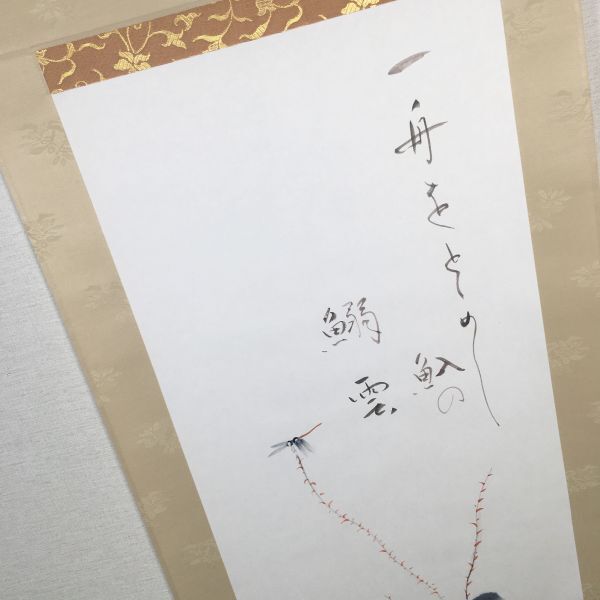 一舟をとめし魞の
鰯雲